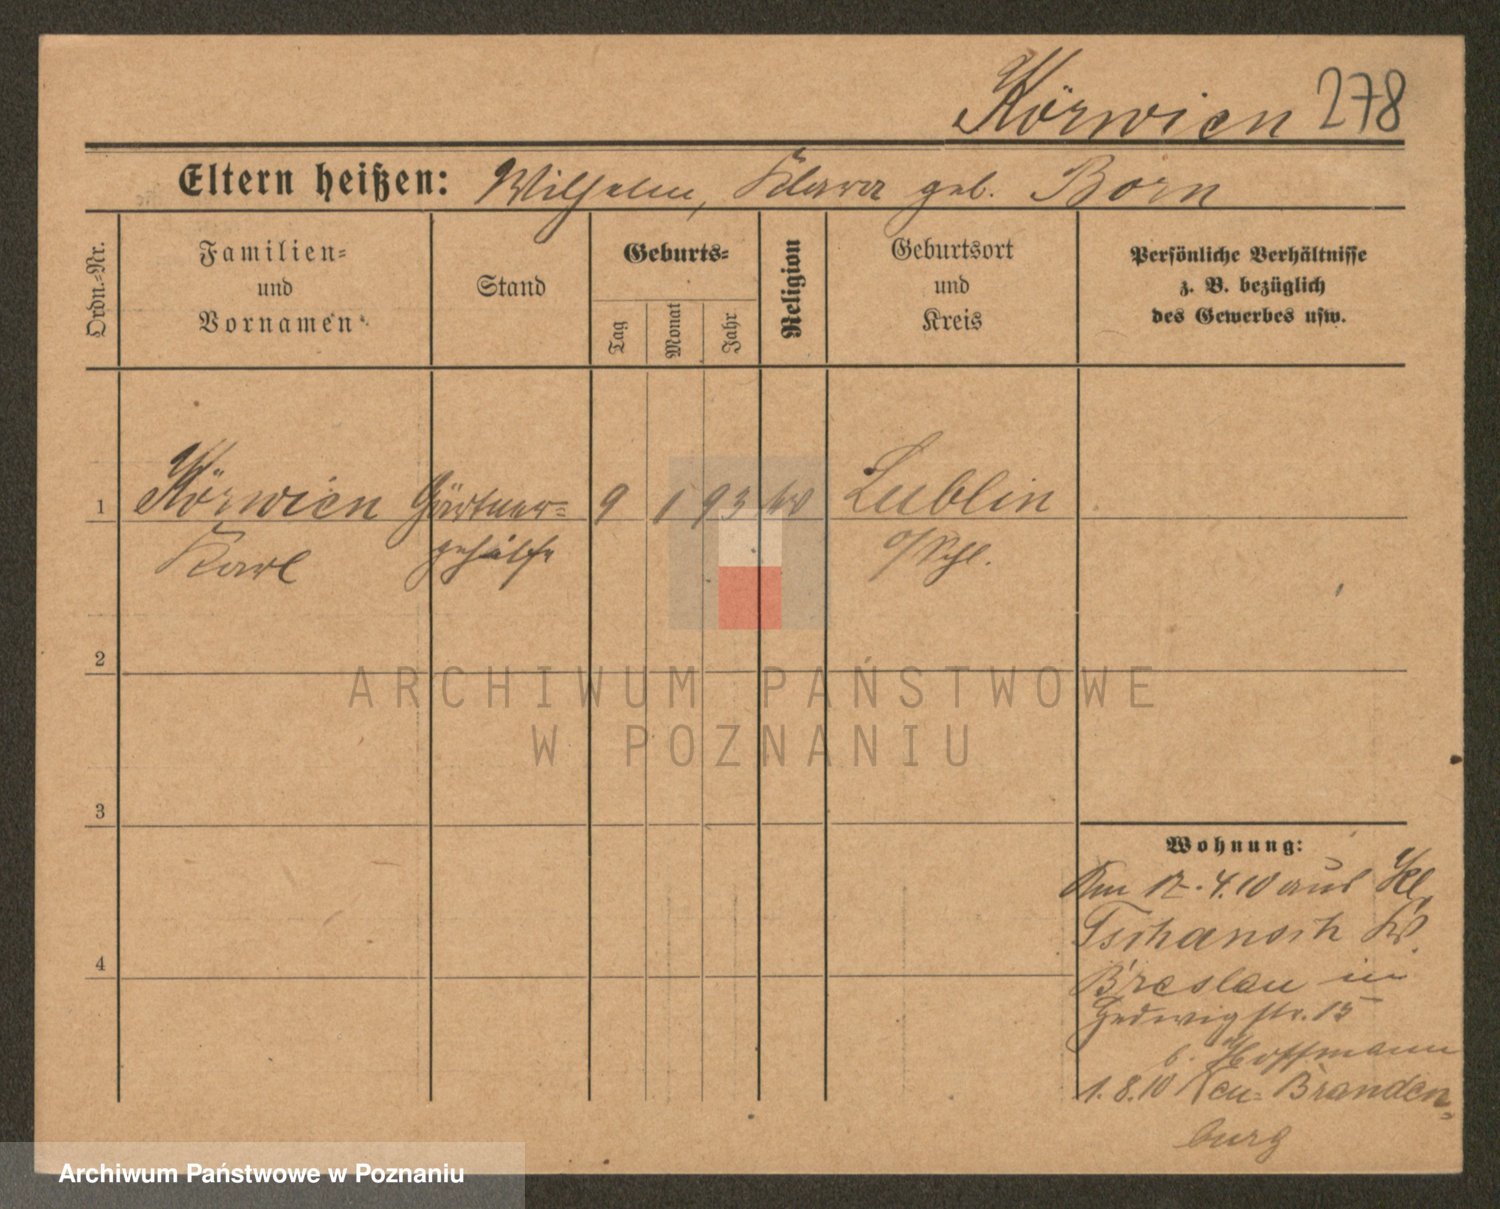 Körwien 278
Eltern heißen: Wilhelm, Klara geb. Born
Ordn.-Nr.
Familien-
und
Vornamen
Stand
Geburts-
Tag
Monat
Jahr
Religion
Geburtsort
und
Kreis
Persönliche Verhältnisse
z. B. bezüglich
des Gewerbes usw.
1 Körwien Gärtner- 9 1 93 Lublin
Karl gehilfe o/Schl.
2
ARCHIWUM PAŃSTWOWE
W POZNANIU
3
4
Wohnung:
Am 12.4.10 aus Kl.
Tschansch Kr.
Breslau in
Hedwigstr. 15
b. Hoffmann
1.8.10 Neu-Branden-
burg
Archiwum Państwowe w Poznaniu